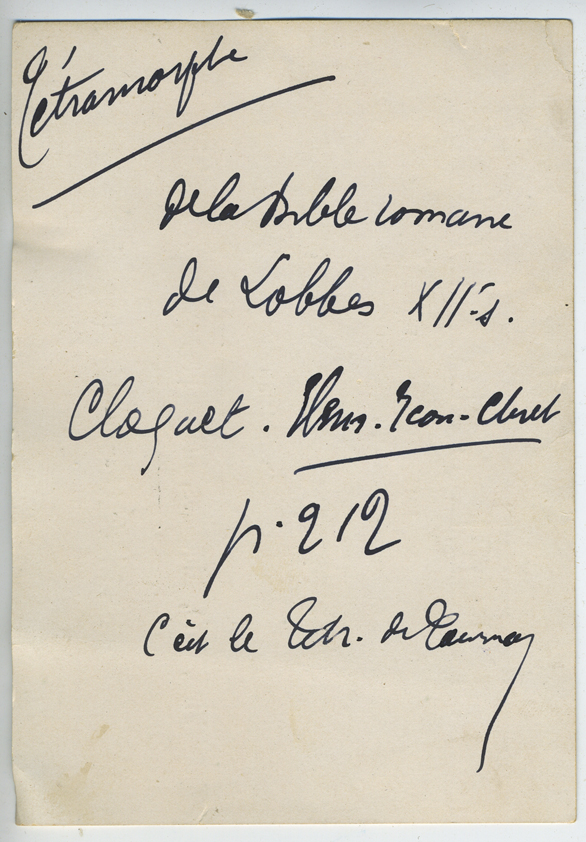 Tétramorphe
de la Bible romane
de Lobbes XIIe s.
Cloquet. Elem. Icon. Chret
p. 212
C'est le Tétr. de Tournay